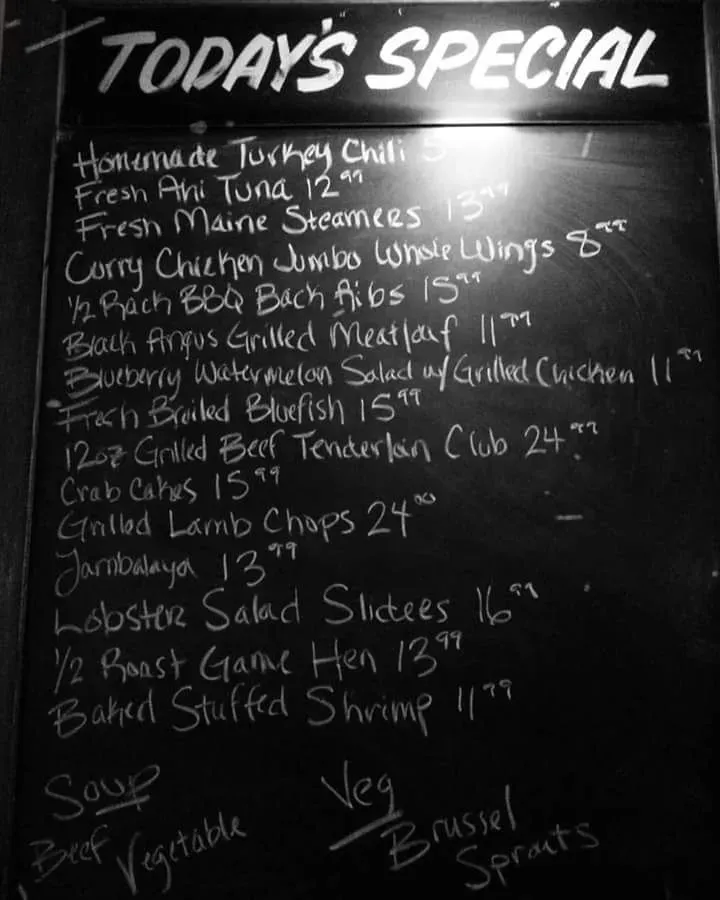 TODAY'S SPECIAL
Homemade Turkey Chili 5
Fresh Ahi Tuna 12.99
Fresh Maine Steamers 13.99
Curry Chicken Jumbo Whole Wings 8.99
1/2 Rack BBQ Back Ribs 15.99
Black Angus Grilled Meatloaf 11.99
Blueberry Watermelon Salad w/ Grilled Chicken 11.99
Fresh Broiled Bluefish 15.99
12oz Grilled Beef Tenderloin Club 24.99
Crab Cakes 15.99
Grilled Lamb Chops 24.00
Jambalaya 13.99
Lobster Salad Sliders 16.99
1/2 Roast Game Hen 13.99
Baked Stuffed Shrimp 11.99
Soup Veg
Beef Vegetable Brussel
Sprouts